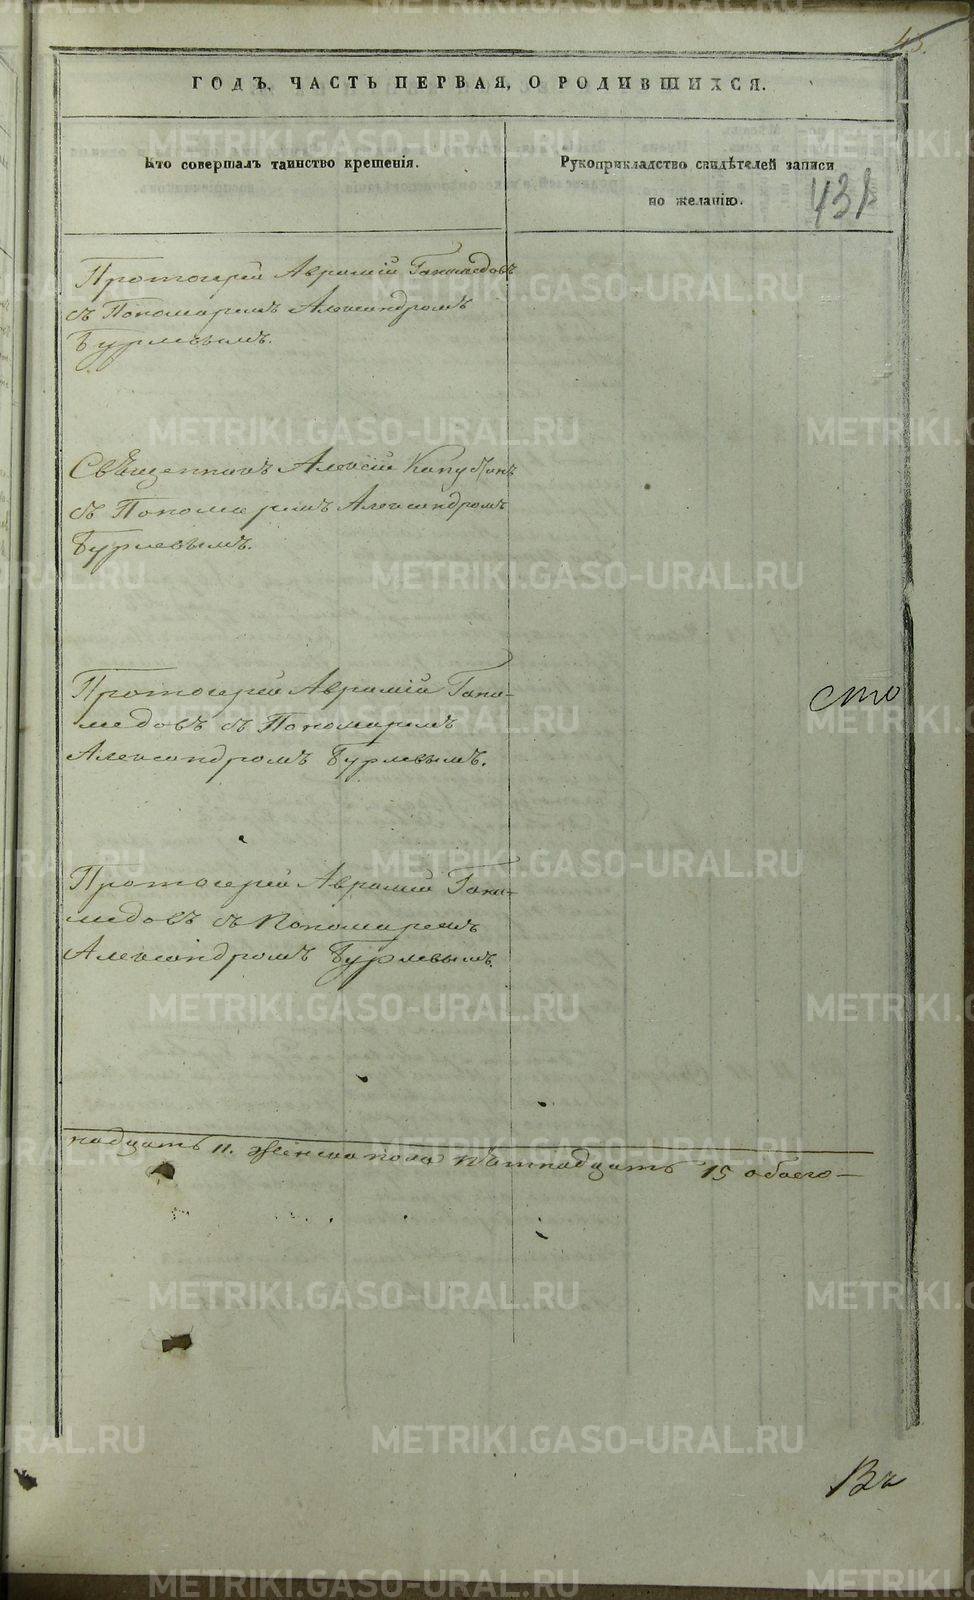 45.
ГОДЪ, ЧАСТЬ ПЕРВАЯ, О РОДИВШИХСЯ.
Кто совершалъ таинство крещенія.
Рукоприкладство свидѣтелей записи
по желанію.
431
Протоіерей Аврамій Ганимедовъ
съ Пономаремъ Александромъ
Бурлевымъ.
Священникъ Алексій
съ Пономаремъ Александромъ
Бурлевымъ.
Протоіерей Аврамій Гани-
медовъ съ Пономаремъ
Александромъ Бурлевымъ.
сто
Протоіерей Аврамій Гани-
медовъ съ Пономаремъ
Александромъ Бурлевымъ.
надцать 11. женска пола пятнадцать 15 обоего—
Въ
METRIKI.GASO-URAL.RU